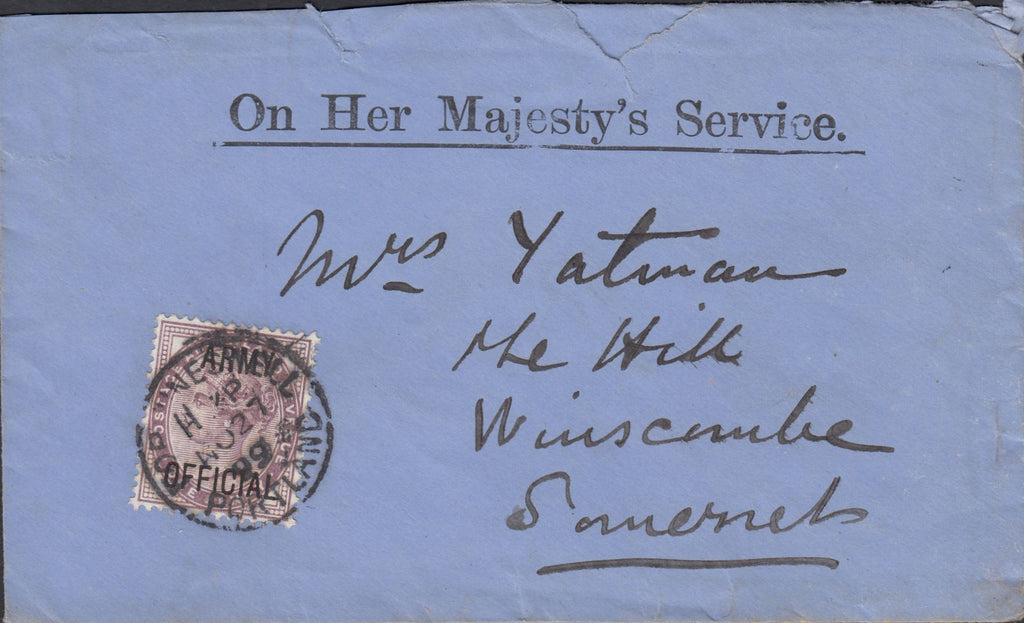 On Her Majesty's Service.
Mrs Yatman
The Hill
Winscombe
Somerset
ARMY
OFFICIAL
27
99
PORTLAND